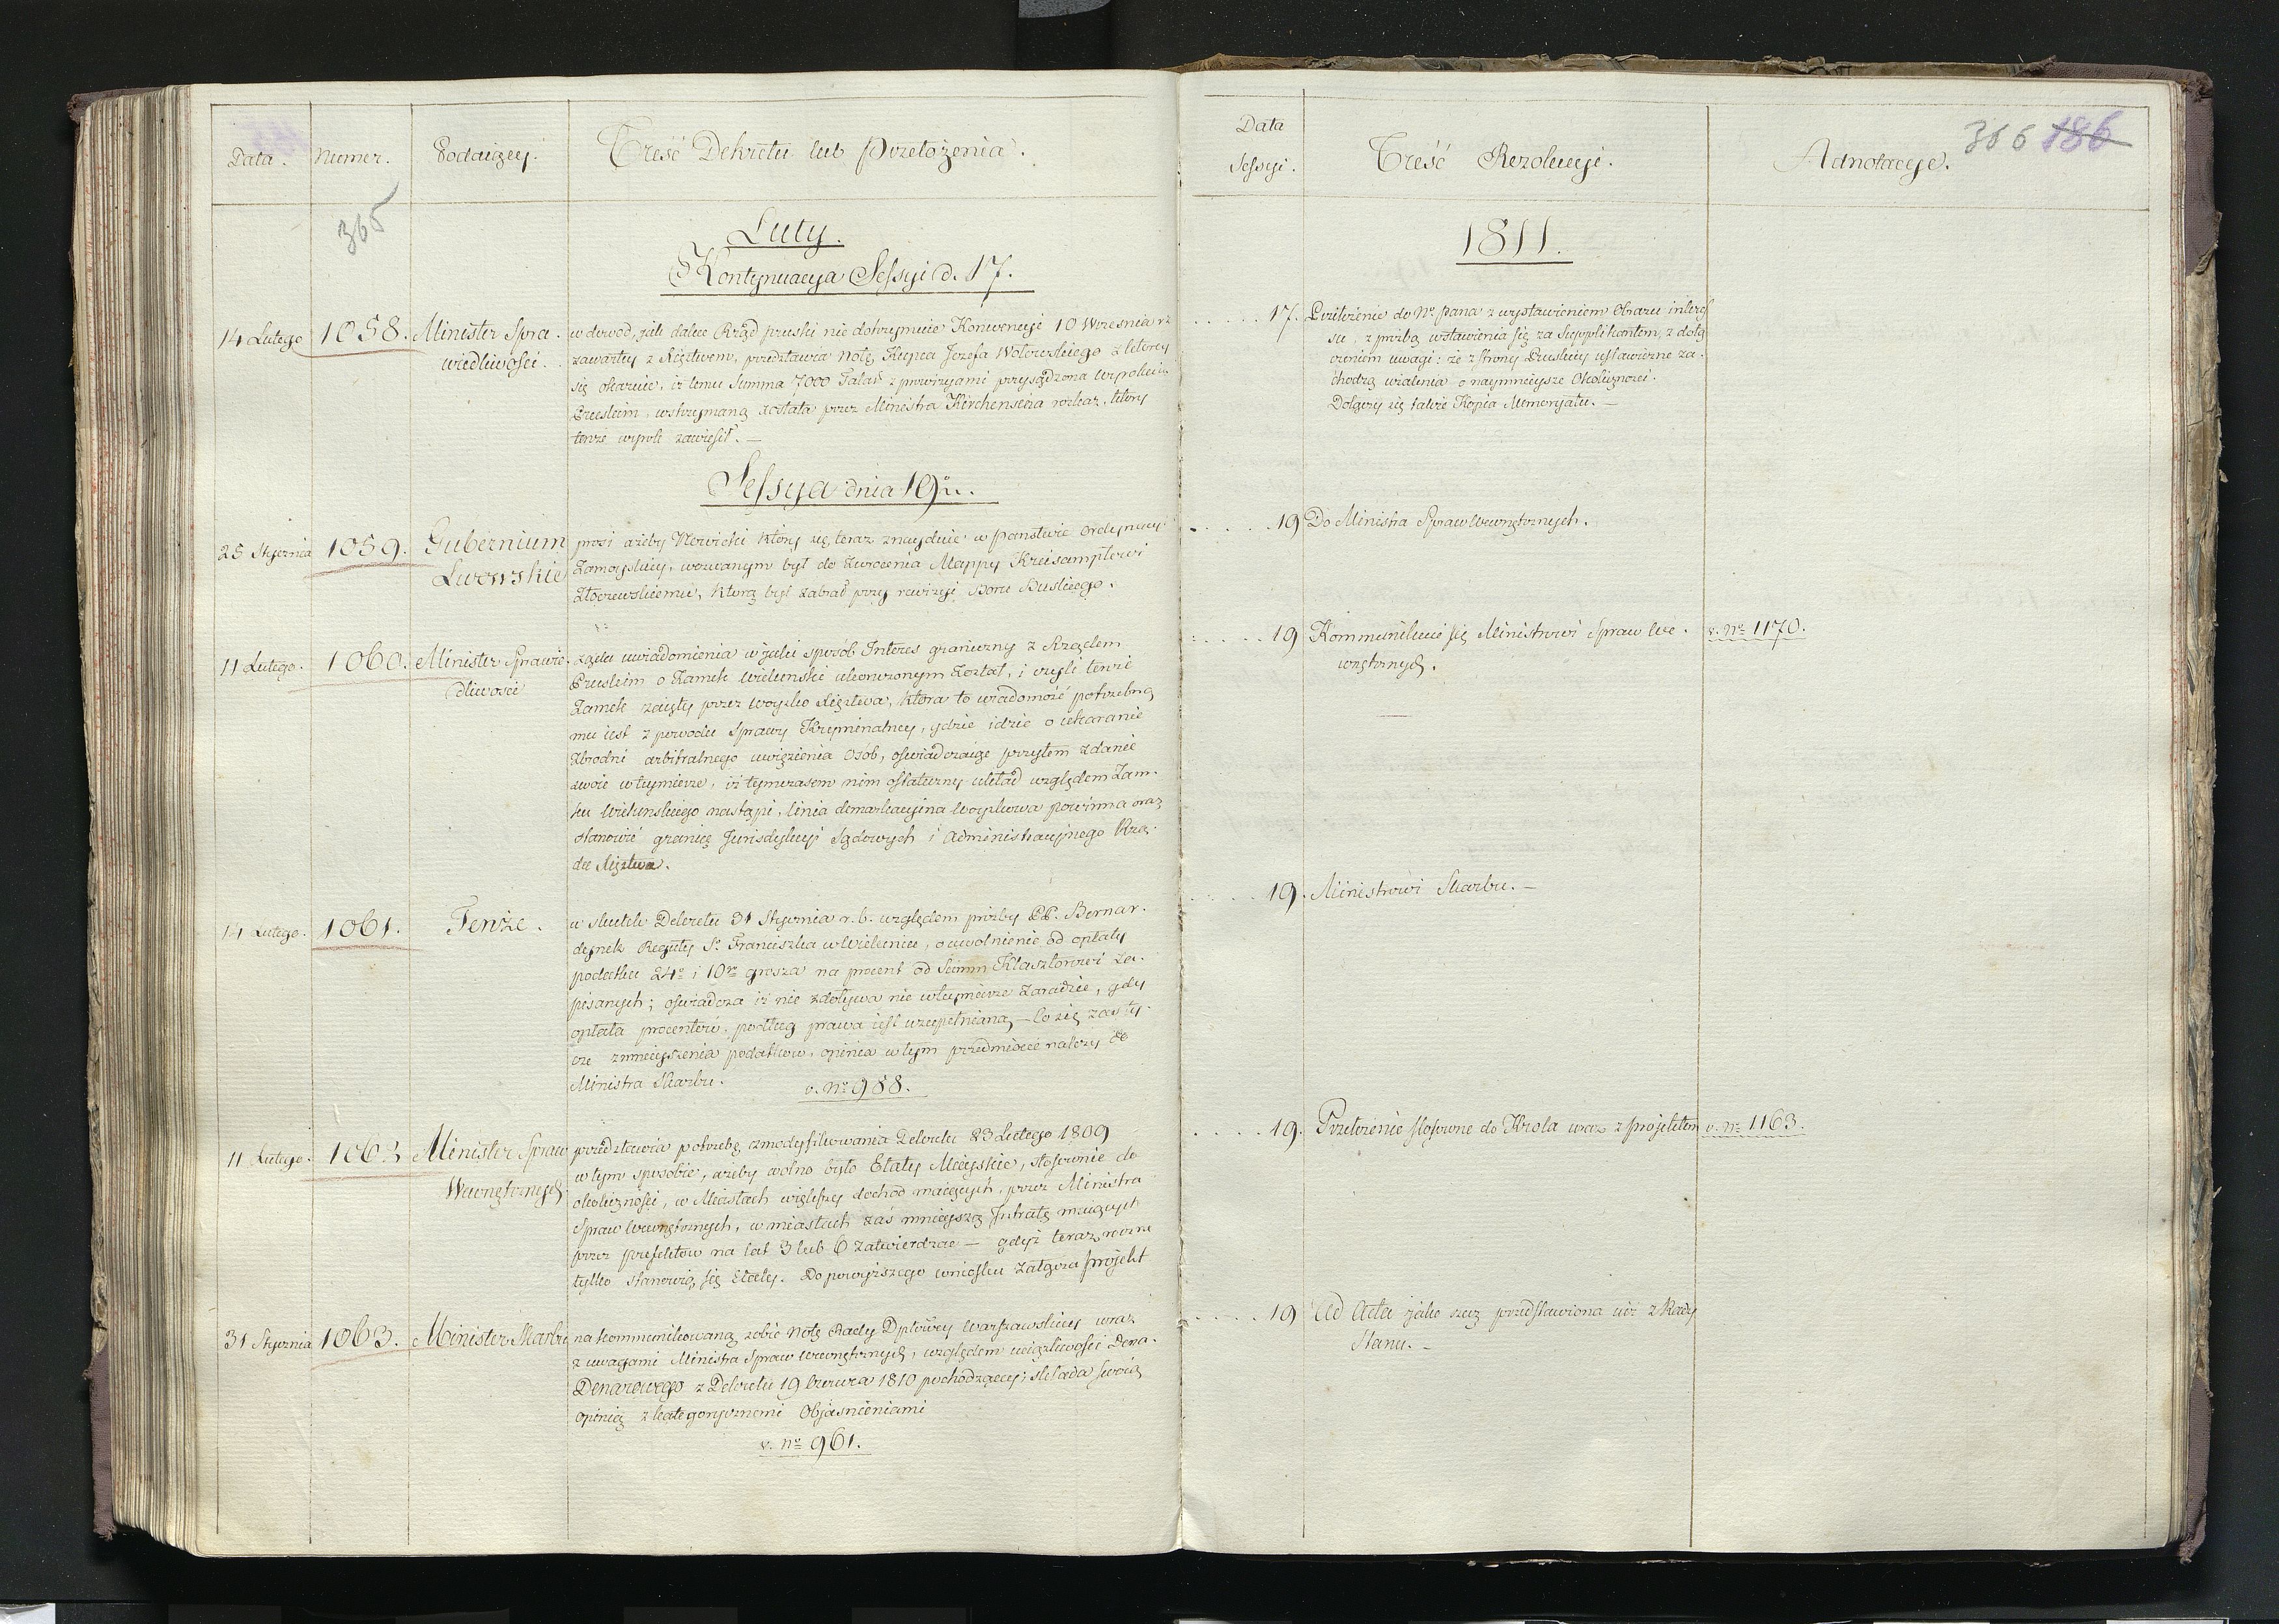 Data. Numer. Podaiący. Treść Dekretu lub Przełożenia.
365
Luty.
Kontynuacya Sessyi d. 17.
14 Lutego 1058. Minister Spra-
wiedliwości.
w dowod, jak dalece Rząd pruski nie dotrzymuie Konwencyi 10 Wrzesnia r.z
zawartey z Xięztwem, przedstawia Notę Kupca Jozefa Wolowskiego z ktorey
się okazuie, iż temu Summa 7000 Talar z prowizyami przysądzona
Pruskim, wstrzymaną została przez Ministra Kircheisena rozkaz, ktory
tenże wyrok zawiesił. —
Sessya dnia 19go.
25 Stycznia 1059. Gubernium
Lwowskie
prosi ażeby Nowicki ktory się teraz znayduie w panstwie Ordynacyi
Zamoyskiey, wezwanym był do zwrocenia Mappy Kreisamptowi
Złoczewskiemu, ktorą był zabrał przy rewizyi Boru Buskiego.
11 Lutego. 1060. Minister Sprawie-
dliwości
żąda uwiadomienia w jaki sposób Interes graniczny z Rządem
Pruskim o Zamek Wielunski ukonczonym Został, i czyli tenże
Zamek zaięty przez woysko Xięztwa, ktora to wiadomość potrzebną
mu iest z powodu Sprawy Kryminalney, gdzie idzie o ukaranie
Zbrodni arbitralnego uwięzienia Osób, oświadczaiąc przytem zdanie
swoie w tymierze, iż tymczasem nim ostateczny układ względem Zam-
ku Wielunskiego nastąpi, linia demarkacyina Woyskowa powinna oraz
stanowić granicę Jurisdykcyi Sądowych i Administracyjnego Rzą-
du Xięztwa.
14 Lutego. 1061. Tenże.
w skutek Dekretu 31 Stycznia r.b. względem prozby PP. Bernar-
dynek Reguły S. Franciszka w Wieluniu, o uwolnienie od opłaty
podatku 24o i 10go grosza na procent od Summ Klasztorowi za-
pisanych; oswiadcza iż nie zdoływa nic w tymierze Zaradzić, gdy
opłata procentów, podług prawa iest uzupełnianą — Co się zaś ty-
cze zmnieyszenia podatkow, opinia w tym przedmiocie należy do
Ministra Skarbu.
v. No 988.
11 Lutego. 1062 Minister Spraw
Wewnętrznych
przedstawia potrzebę zmodyfikowania Dekretu 23 Lutego 1809
w tym sposobie, ażeby wolno było Etaty Mieyskie, stosownie do
okoliczności, w Miastach większy dochod maiących, przez Ministra
Spraw Wewnętrznych, w miastach zaś mnieyszą Intratę maiących
przez prefektow na lat 3 lub 6 zatwierdzać — gdyż teraz roczne
tylko stanowią się Etaty. Do powyższego wniosku załącza projekt
31 Stycznia 1063. Minister Skarbu
na kommunikowaną sobie Notę Rady Dptowey Warszawskiey wraz
z uwagami Ministra Spraw Wewnętrznych, względem uciążliwości
Denarowego z Dekretu 19 Czerwca 1810 pochodzącey; składa swoią
opinię z kategorycznemi Objasnieniami
v. No 961.
Data
Sessyi. Treść Rezolucyi. Adnotacye. 366 186
1811.
17. Przełożenie do N. pana z wystawieniem Obrazu interes
su, z prozbą wstawienia się za Supplikantem, z dołą-
czeniem uwagi: że z strony Pruskiey ustawiczne za-
chodzą o naymnieysze Okoliczności.
Dołączy się także Kopia Memoryału. —
19 Do Ministra Spraw Wewnętrznych.
19 Kommunikuie się Ministrowi Spraw We- v. No 1170.
wnętrznych.
19. Ministrowi Skarbu. —
19. Przełożenie stosowne do Krola wraz z projektem v. No 1163.
19 Ad Acta jako rzecz przedstawiona iuż z Rady
Stanu. —